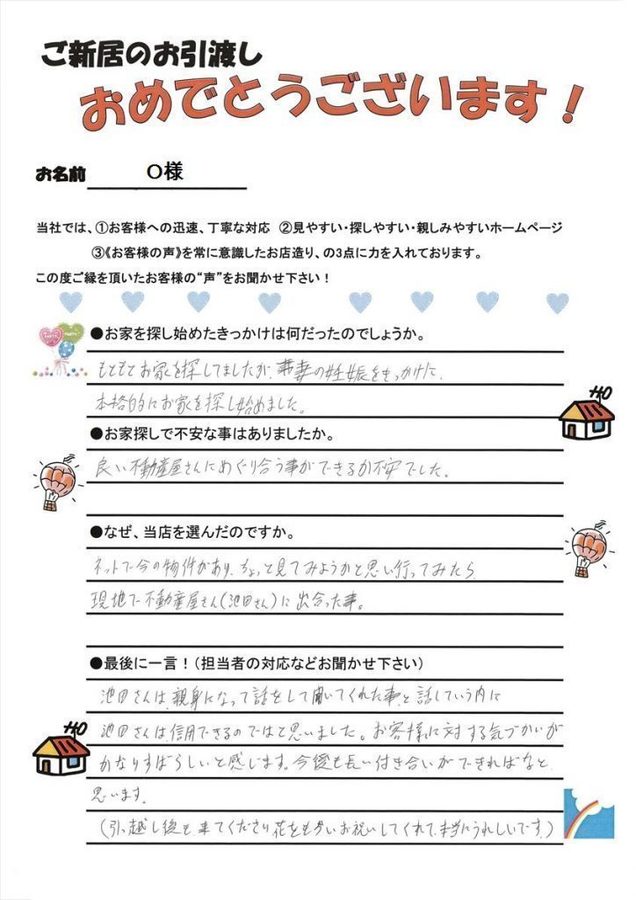 ご新居のお引渡し
おめでとうございます！
お名前 O様
当社では、①お客様への迅速、丁寧な対応 ②見やすい・探しやすい・親しみやすいホームページ
③《お客様の声》を常に意識したお店造り、の3点に力を入れております。
この度ご縁を頂いたお客様の“声”をお聞かせ下さい！
●お家を探し始めたきっかけは何だったのでしょうか。
もともとお家を探してましたが、妻の妊娠をきっかけに、
本格的にお家を探し始めました。
●お家探しで不安な事はありましたか。
良い不動産屋さんにめぐり合う事ができるか不安でした。
●なぜ、当店を選んだのですか。
ネットで今の物件があり、ちょっと見てみようかと思い行ってみたら
現地で不動産屋さん(池田さん)に出合った事。
●最後に一言！(担当者の対応などお聞かせ下さい)
池田さんは、親身になって話をして聞いてくれた事と話していう内に
池田さんは信用できるのではと思いました。お客様に対する気づかいが
かなりすばらしいと感じます。今後も長い付き合いができればなと
思います。
(引っ越し後も来てくださり花をもらいお祝いしてくれて、本当にうれしいです。)